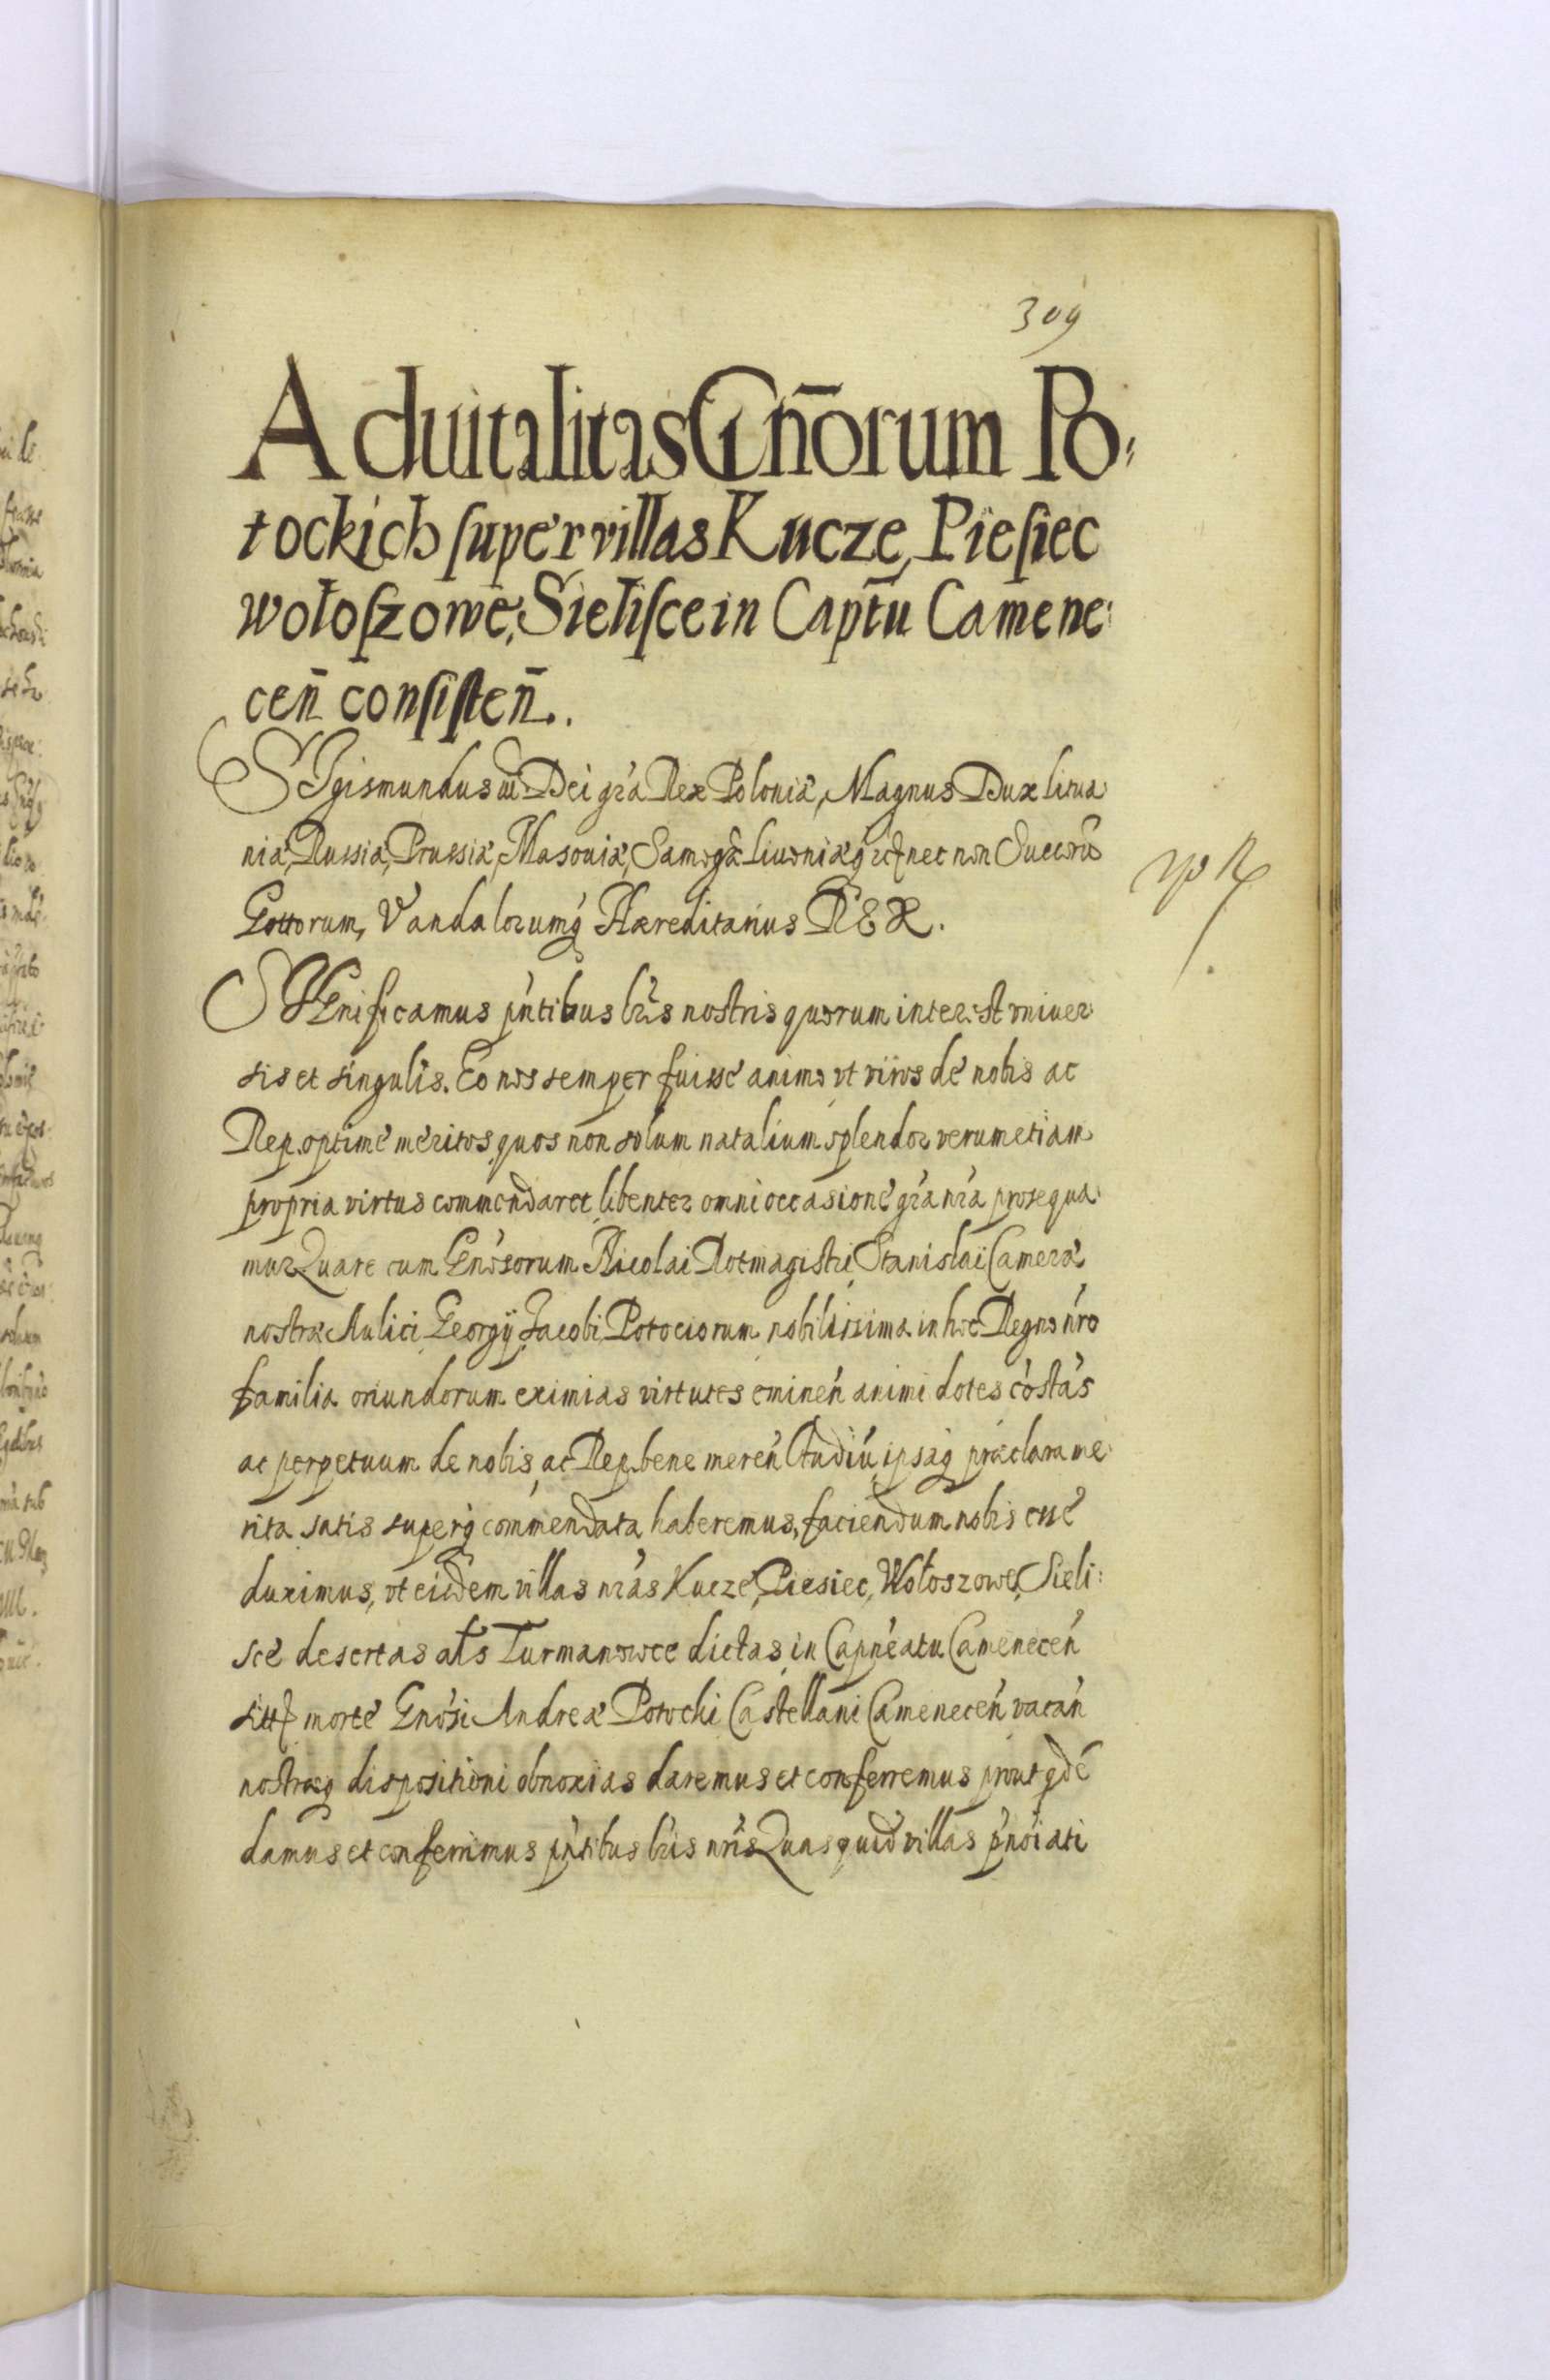 309
Aduitalitas Gn̄orum Po,
tockich super villas Kucze, Piesiec
wołoszowe, Sielisce in Capt̄u Camene:
cen̄ consisten̄.
SIgismundus III Dei gra Rex Poloniæ, Magnus Dux litua:
niæ, Russiæ, Prussiæ, Masouiæ, Samogæ liuoniæq̃ nec non Suecoru
Gottorum, Vandalorumq̃ Hæreditarius REX.
SIGnificamus pn̄tibus lr̄is nostris quorum interest vniuer
sis et singulis. Eo nos semper fuisse animo vt viros de nobis ac
Rep. optime meritos, quos non solum natalium splendor verum etiam
propria virtus commendaret, libenter omni occasione gra nra prosequa:
mur Quare cum Gnosorum Nicolai Rotmagistri, Stanislai Cameræ
nostræ Aulici, Georgij, Jacobi Potociorum nobilissima in hoc Regno nro
familia oriundorum eximias virtutes eminen animi dotes costas
ac perpetuum de nobis, ac Rep. bene meren studiu, ipsaq̃ præclara me:
rita satis superq̃ commendata haberemus, faciendum nobis esse
duximus, vt eisdem villas nras Kucze, Piesiec, Wołoszowe, Sieli:
sce desertas als Turmanowce dictas, in Capneatu Camenecen
sitt morte Gnosi Andreæ Potocki Castellani Camenecen vacan
nostræq̃ dispositioni obnoxias daremus et conferremus prout qde
damus et conferrimus pn̄tibus lr̄is nris Quas quid villas pnoiati